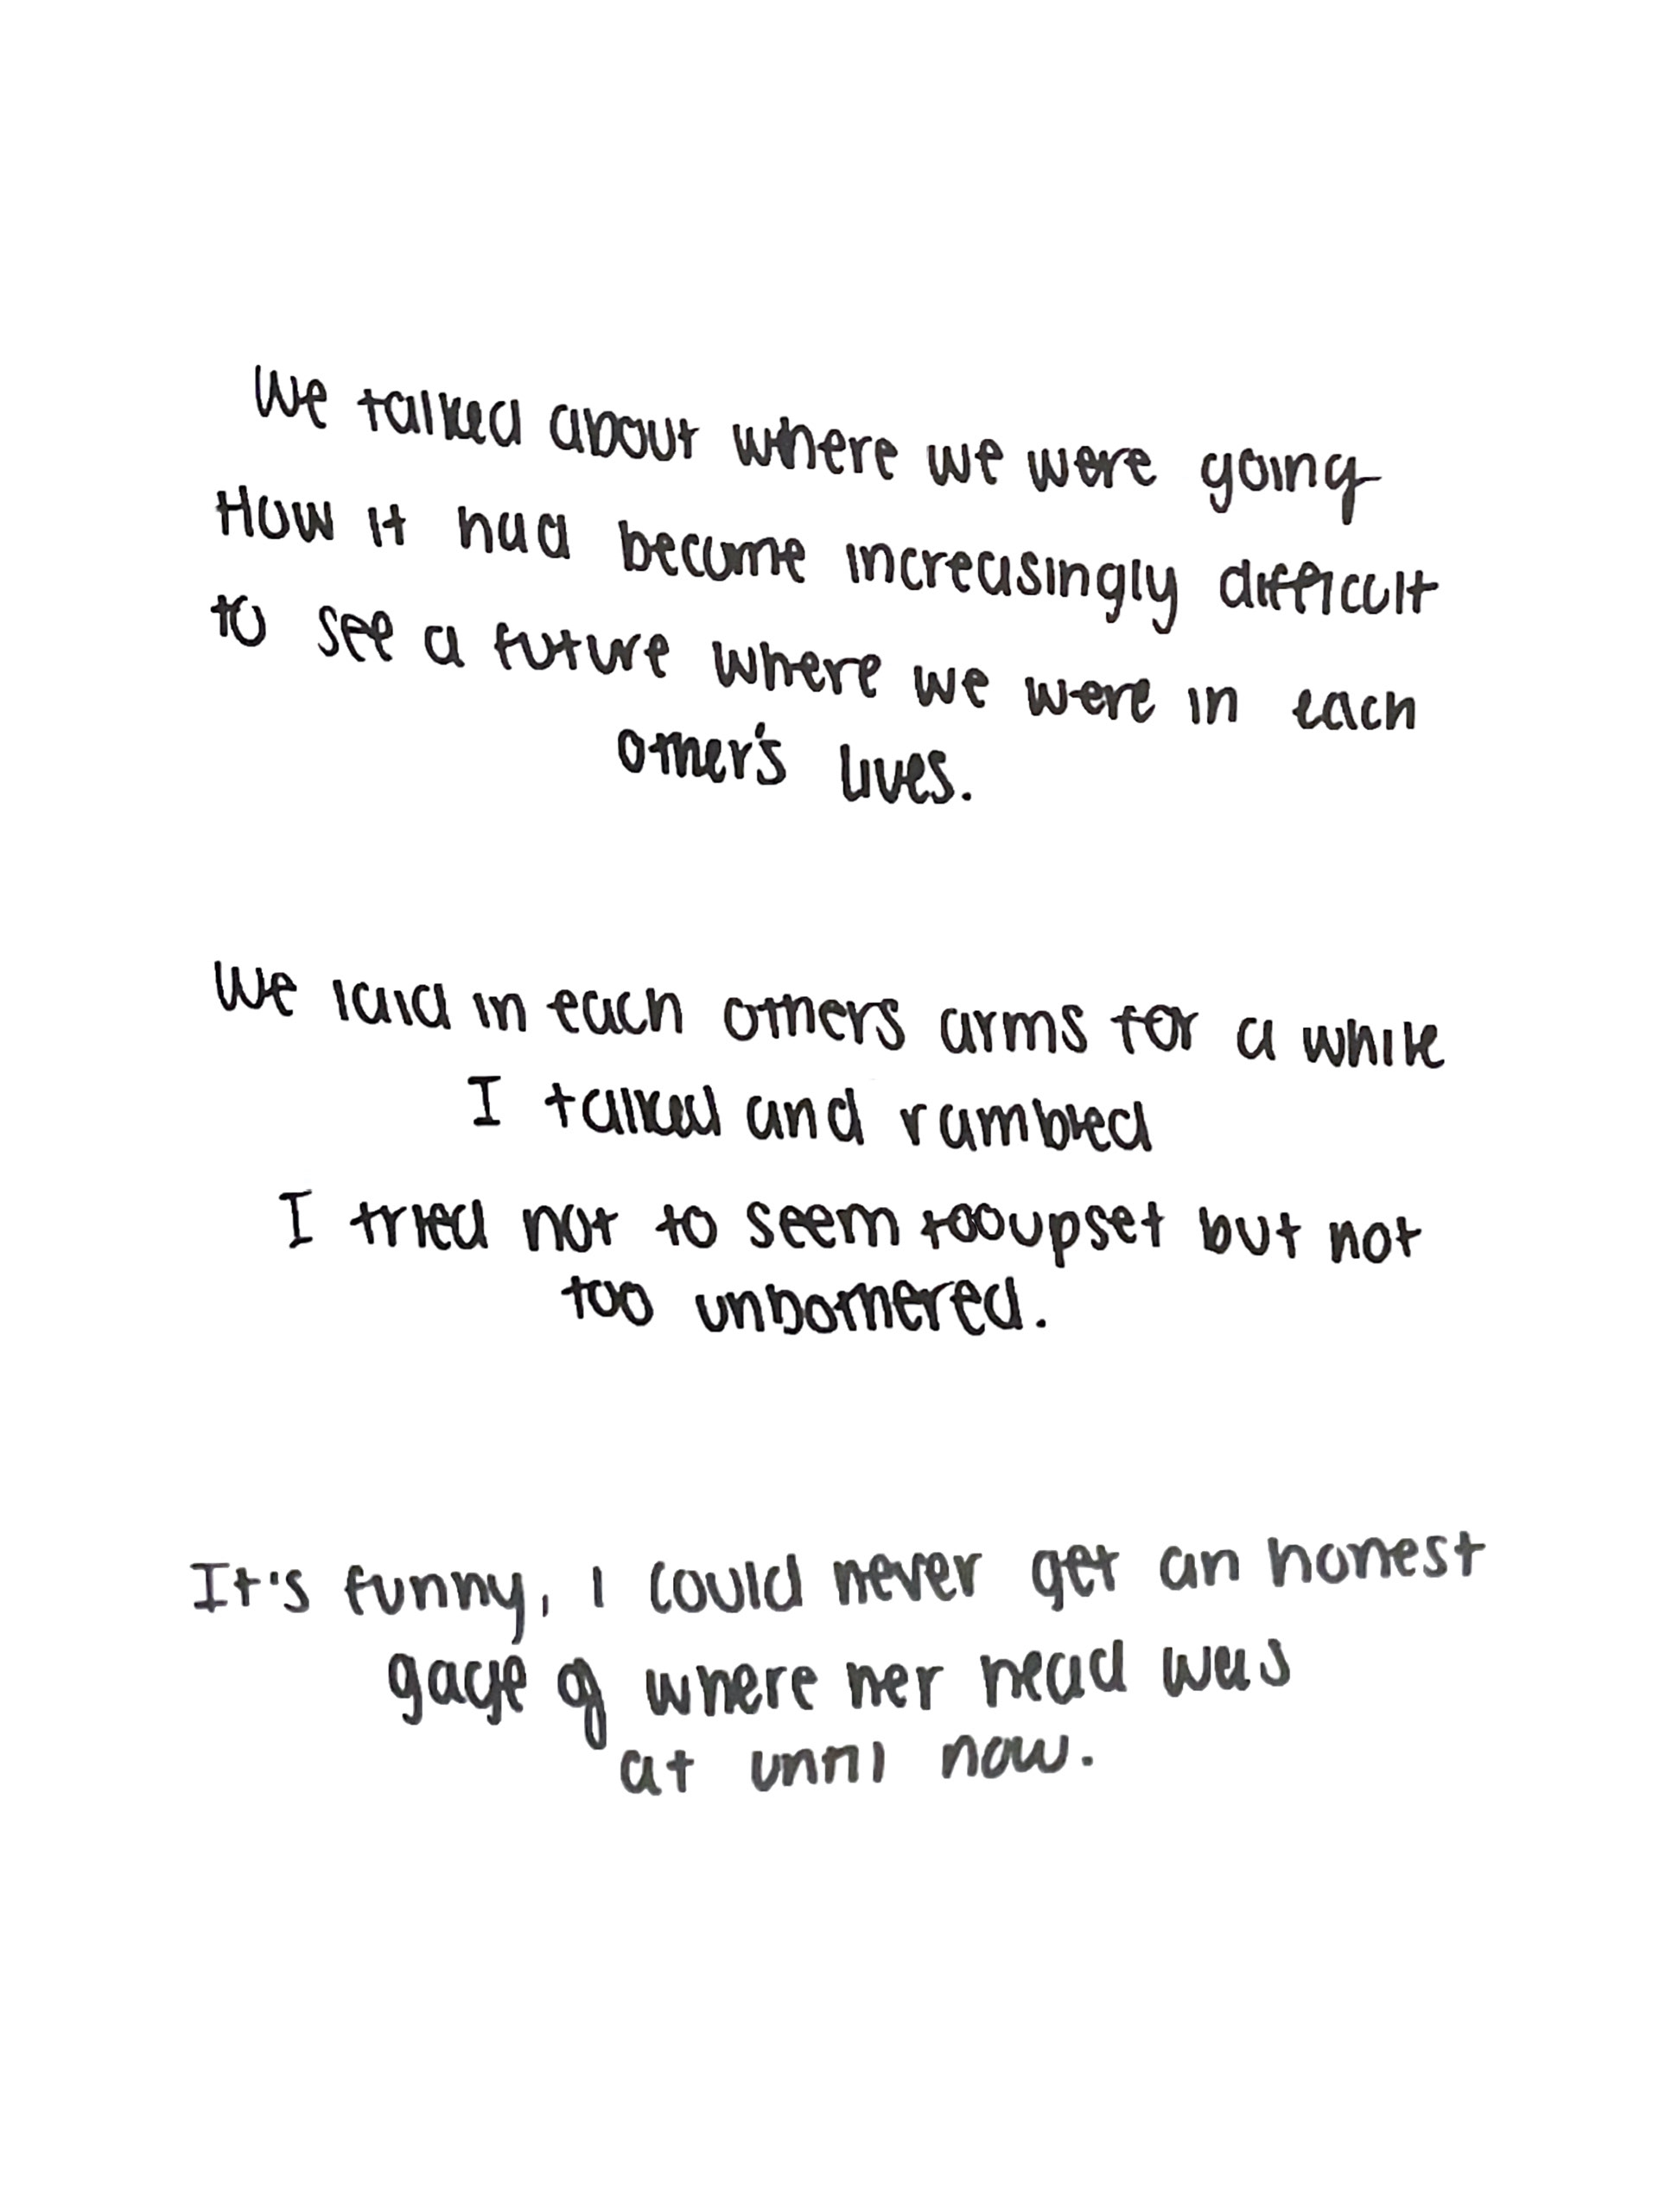 We talked about where we were going
How it had become increasingly difficult
to see a future where we were in each
other's lives.
We laid in each others arms for a while
I talked and rambled
I tried not to seem too upset but not
too unbothered.
It's funny, I could never get an honest
gage of where her head was
at until now.